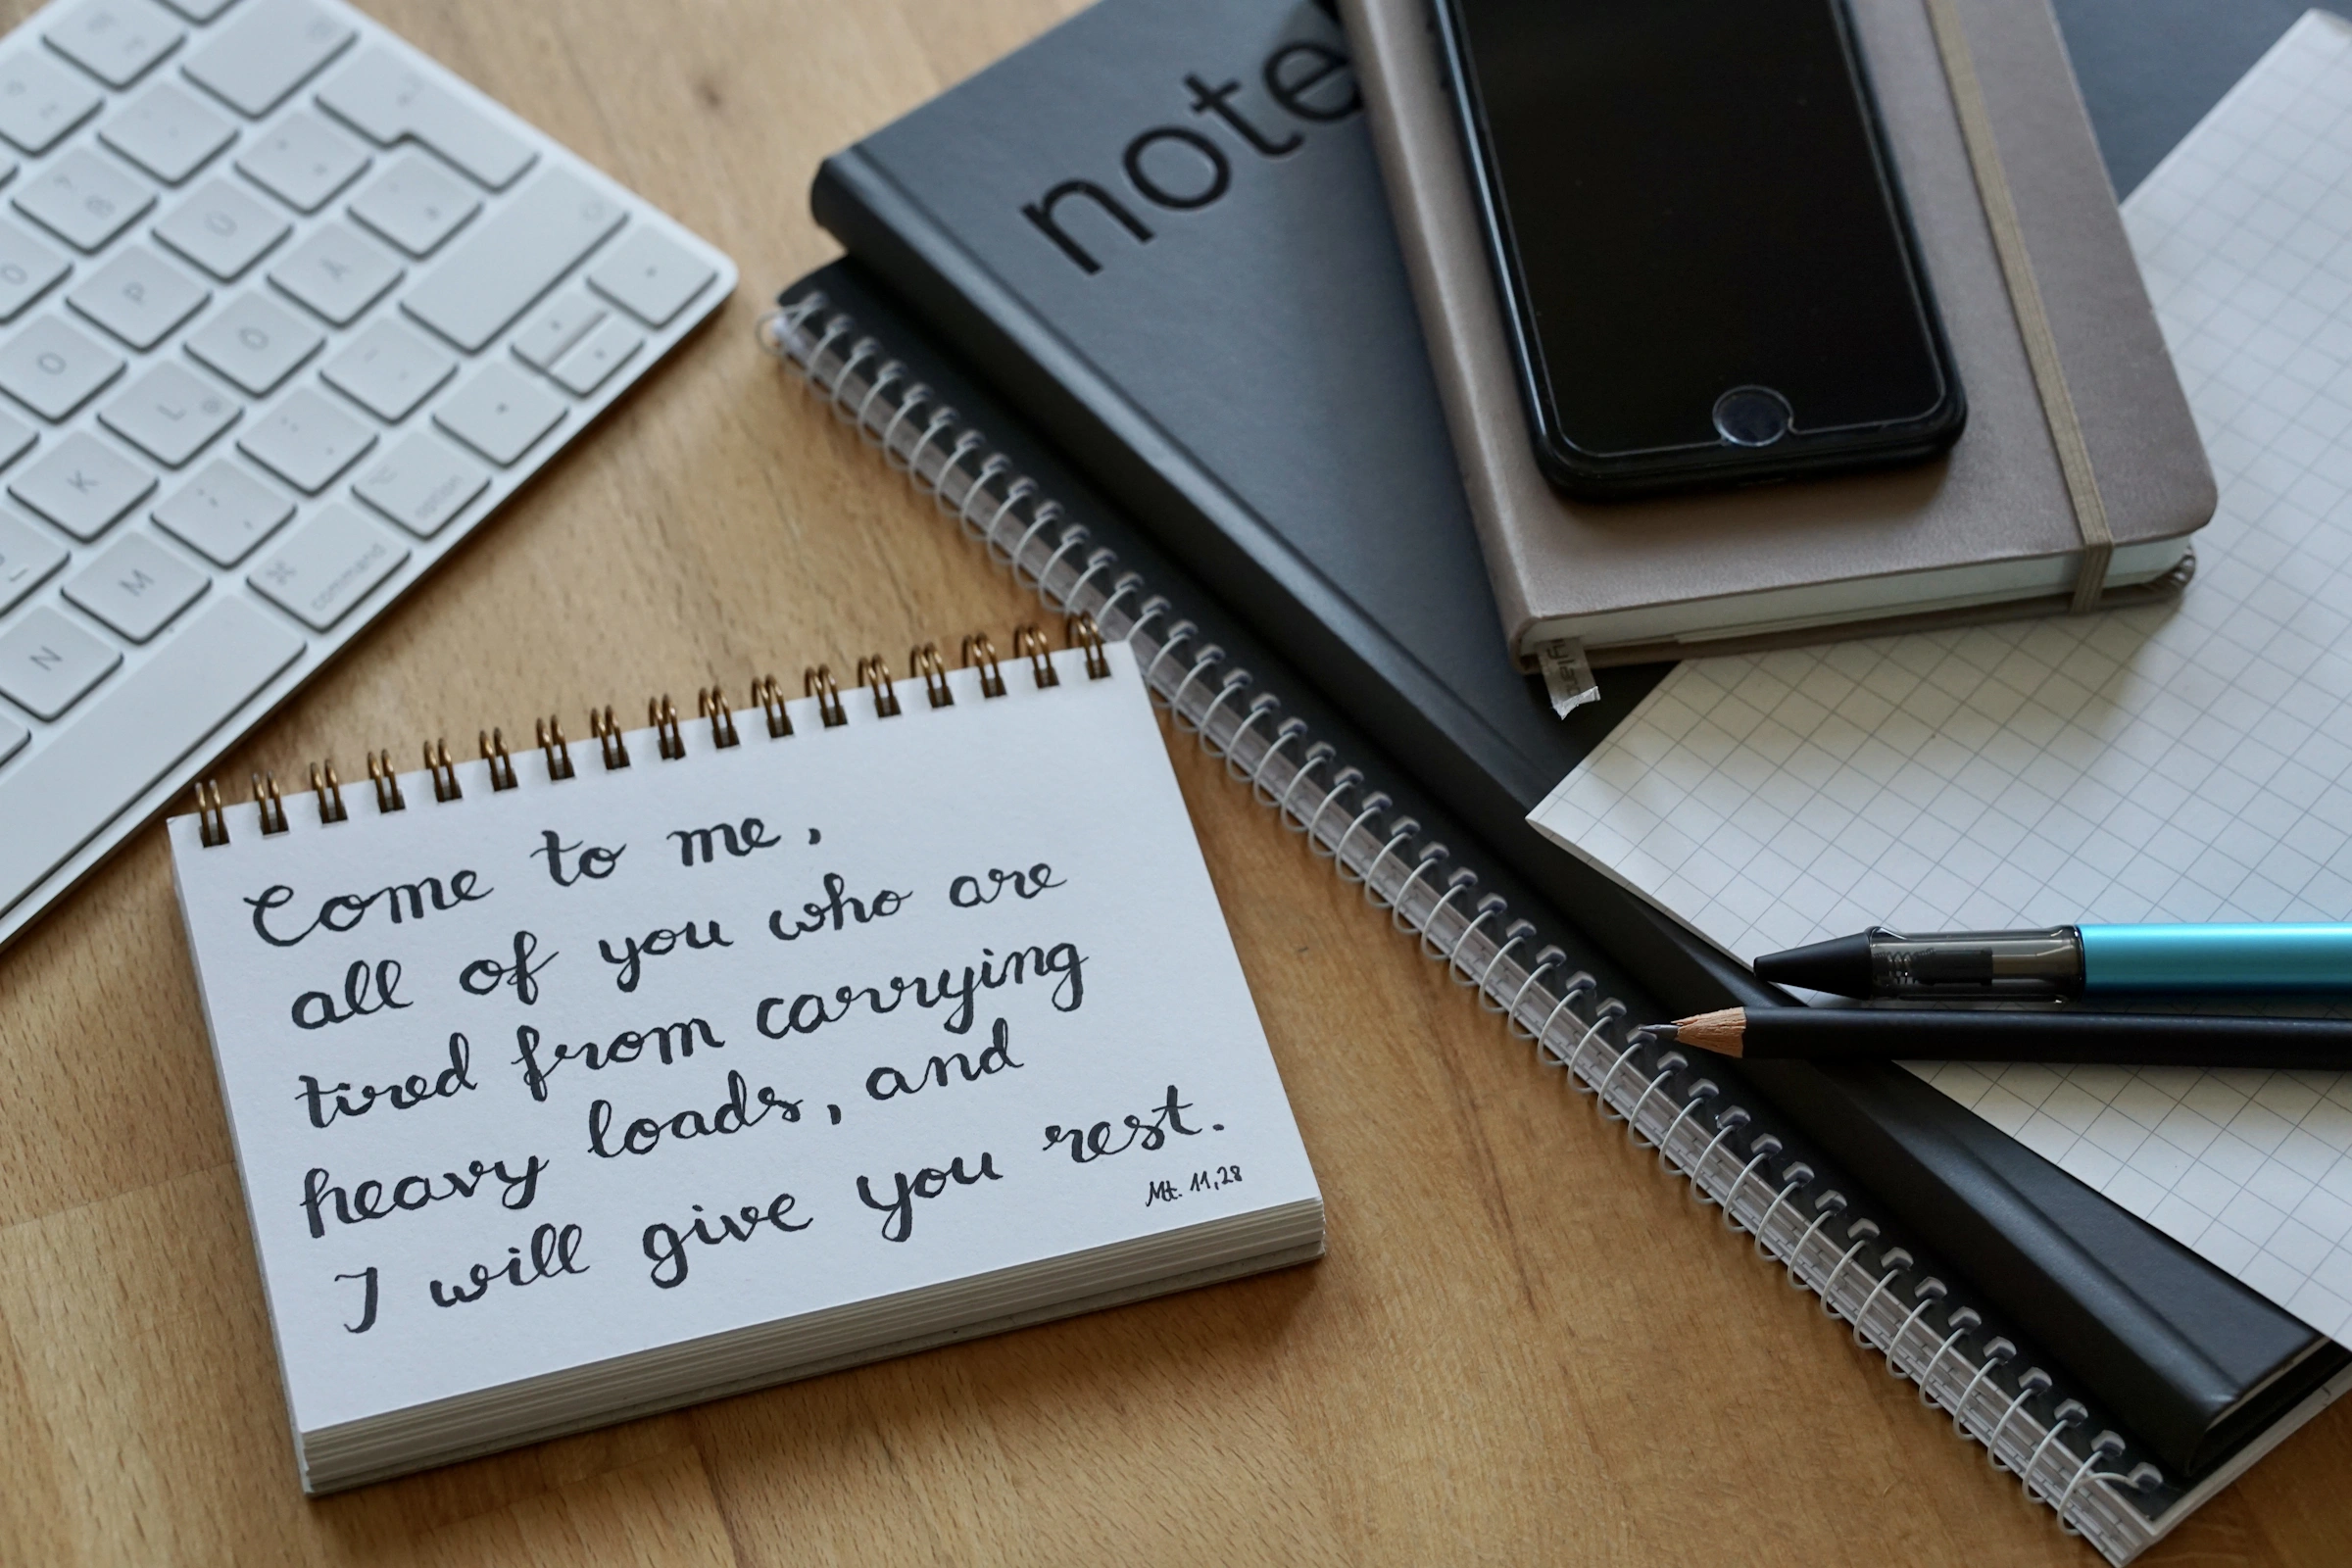 Come to me,
all of you who are
tired from carrying
heavy loads, and
I will give you rest.
Mt. 11,28
note
O
P
Ü
Ö
Ä
L
K
M
N
option
command